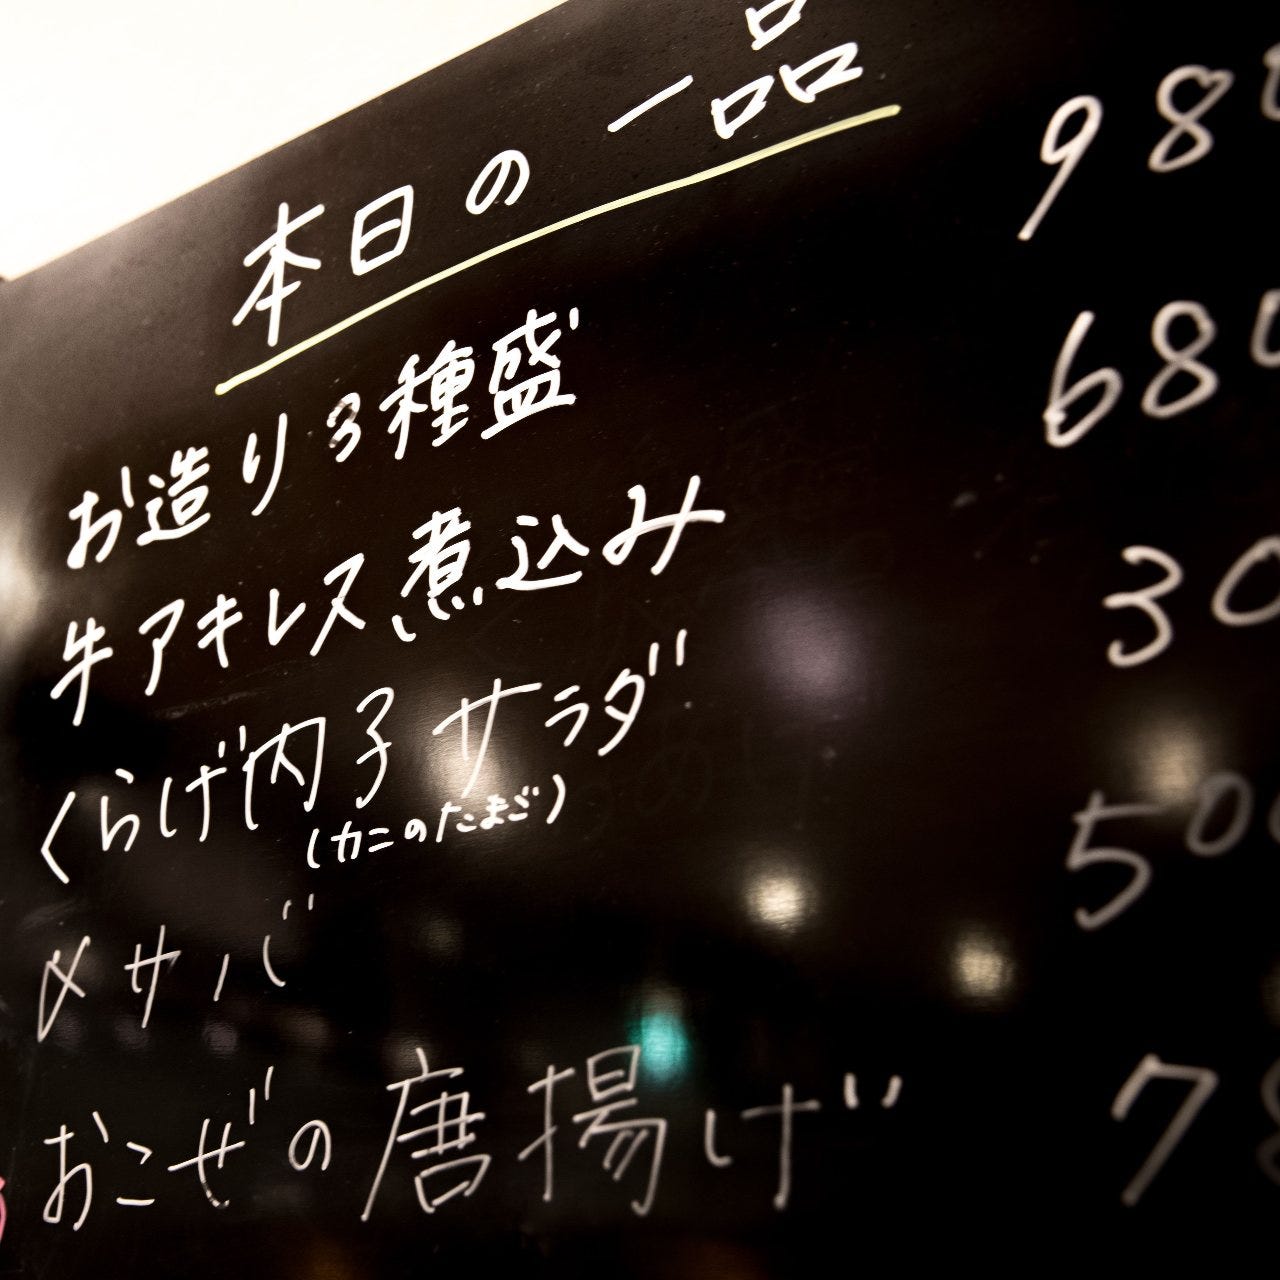 本日の一品
お造り3種盛 980
牛アキレス煮込み 680
くらげ内子サラダ 30
(カニのたまご)
〆サバ 500
おこぜの唐揚げ 78